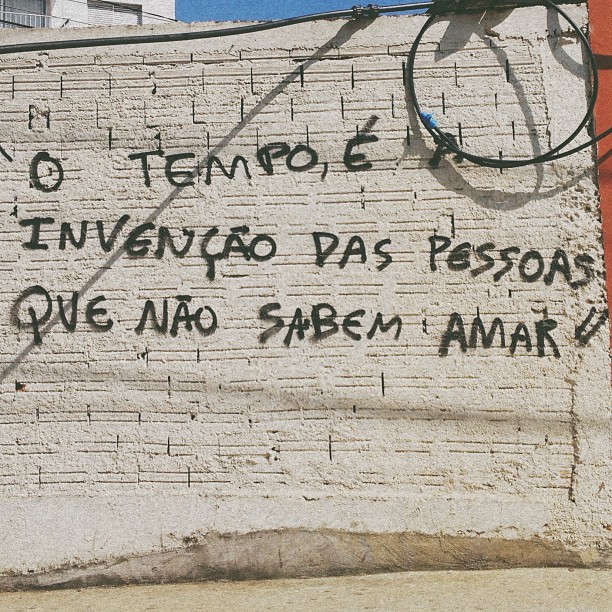 "O TEMPO, É A
INVENÇÃO DAS PESSOAS
QUE NÃO SABEM AMAR"